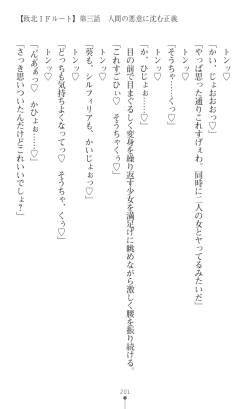 【敗北IFルート】第三話　人間の悪意に沈む正義
トンッ♡
「かい、じょおおおっ♡」
トンッ♡
「やっぱ思った通りこれすげぇわ。同時に二人の女とヤッてるみたいだ」
「そうちゃ……♡」
トンッ♡
「か、ひじょぉ……♡」
目の前で目まぐるしく変身を繰り返す少女を満足げに眺めながら激しく腰を振り続ける。
「これすごひぃ♡　そうちゃくぅ♡」
トンッ♡
「葵も、シルフィリアも、かいじょぉっ♡」
トンッ♡
「どっちも気持ちよくなってっ♡　そうちゃ、くぅ♡」
トンッ♡
「んぁあぁっ♡　かひょぉ……♡」
「さっき思いついたんだけどこれいいでしょ？」
201